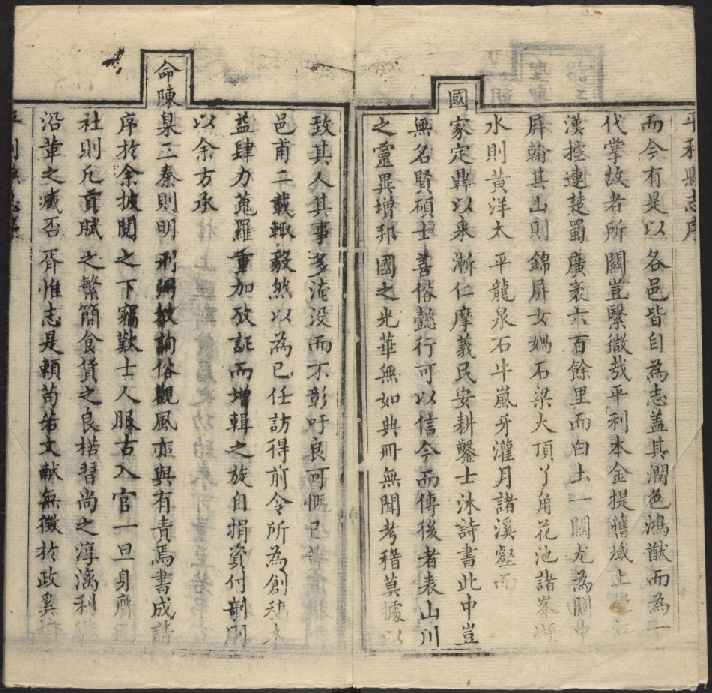 平利縣志序
而今有是以各邑皆自為志蓋其潤色鴻猷而為一
代掌故者所關豈繄微哉平利本金提舊域上
漢控連楚蜀廣袤六百餘里而白土一關尤為關中
屏翰其山則錦屏女媧石梁大頂丫角花池諸峯
水則黃洋太平龍泉石牛嵐牙灌月諸溪壑而
國家定鼎以來漸仁摩義民安耕鑿士沐詩書此中豈
無名賢碩士善俗懿行可以信今而傳後者表山川
之靈異增邦國之光華無如典冊無聞考稽莫據以
致其人其事多淹沒而不彰吁良可慨已
邑甫二載輒毅然以為己任訪得前令所為創稿
益肆力蒐羅重加攷証而增輯之旋自捐資付剞劂
以余方承
命陳臬三秦則明刑弼教詢俗觀風亦與有責焉書成請
序於余披閱之下竊歎士人服古入官一旦身膺
社則凡貢賦之繁簡食貨之良楛習尚之淳漓利
沿革之臧否胥惟志是賴苟若文獻無徵於政奚
平利縣志序